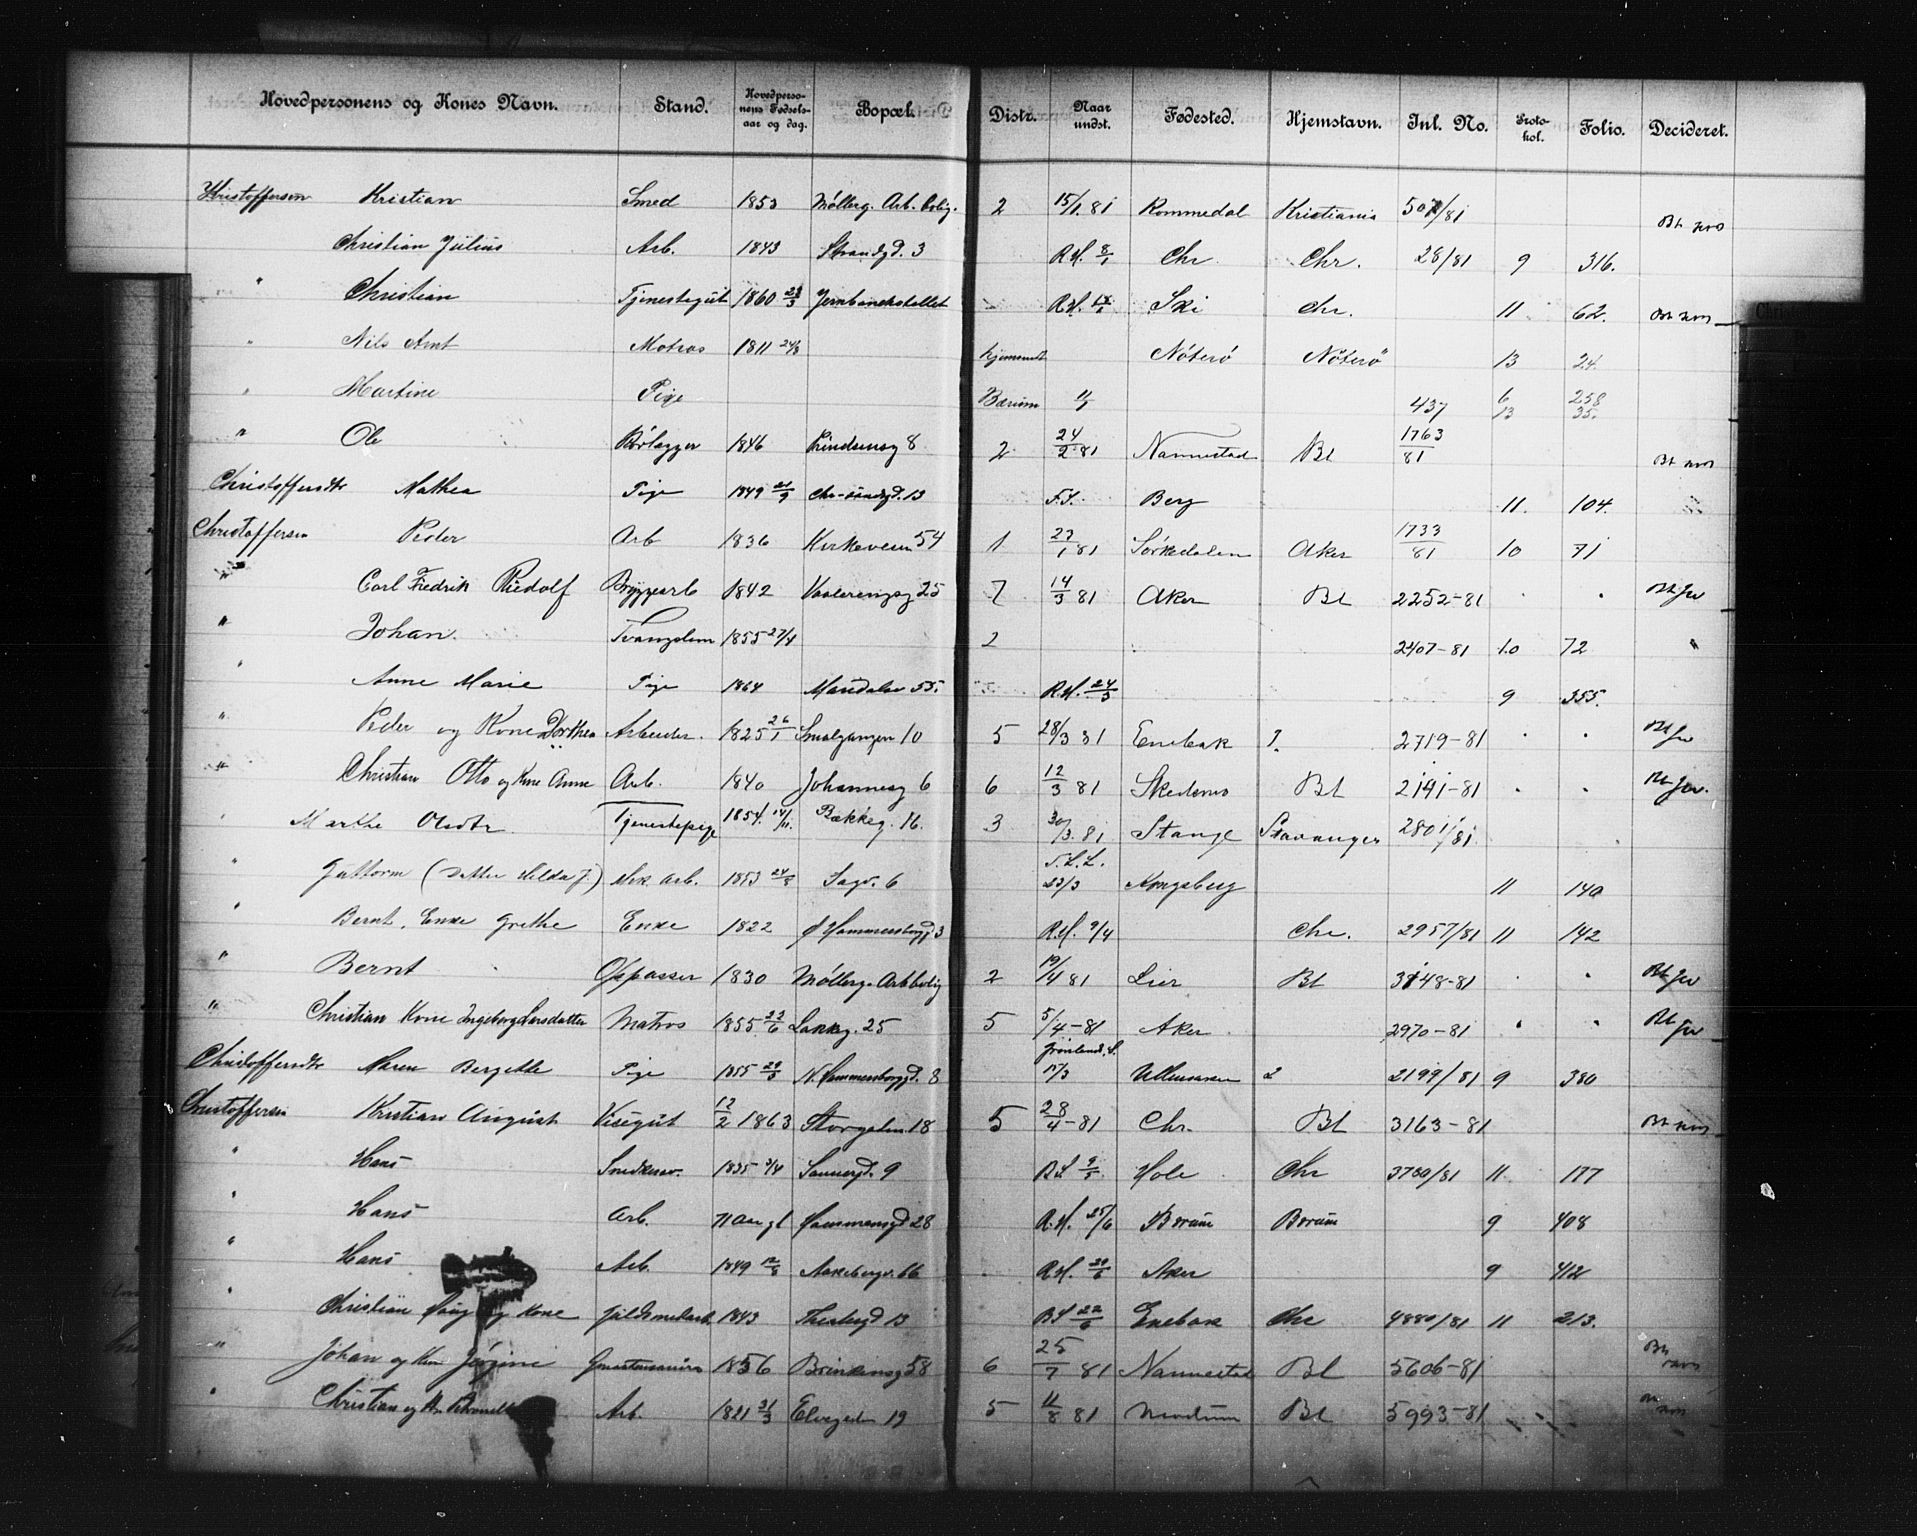 Hovedpersonens og Kones Navn. Stand. Hovedpersonens Fødselsaar og dag. Bopæl. Distr. Naar undst. Fødested. Hjemstavn. Inl. No. Protokol. Folio. Decideret.
Kristoffersen Kristian Smed 1853 Møllerg. Arb. bolig. 2 15/1 81 Rommedal Kristiania /81
Christian Julius Arb. 1843 Strandgd. 3 R.H. 8/1 Chr Chr. 28/81 9 316.
" Christian Tjenestegut 1860 23/3 R.H. Ski Chr. 11 62.
" Nils Arnt Matros 1811 24/8 hjemsendt Nöterö Nöterö 13 24.
" Martine Pige Bærum 437 6 13 258 35.
" Ole Rørlægger 1846 8 2 24/2 81 Nannestad Bl 1763/81
Christoffersdtr Mathea Pige 1849 21/9 13 F.S. Berg 11. 104.
Christoffersen Peder Arb 1836 Kirkeveien 54 1 27/1 81 Sørkedalen Aker 1733/81 10 71
" Carl Fredrik Rudolf Bryggearb 1842 Vaalerengsg 25 7 14/3 81 Aker Bl 2252-81 . .
" Johan. 1855 27/4 2 2407-81 10 72 "
" Anne Marie Pige 1864 Maridalsv 55. R.H. 24/3 9 355.
" Peder og Kone Dorthea Arbeider. 1825 26/1 Smalgangen 10 5 28/3 81 Enebak ?. 2719-81 . .
" Christian Otto og Kone Anne Arb. 1840 Johannesg 6 6 12/3 81 Skedsmo Bl 2141-81 . .
" Marthe Olsdtr Tjenestepige 1854. 14/11. Bækkeg. 16. 3 30/3. 81 Stange Stavanger 2801/81.
" Guttorm (Datter Hilda J.) arb. 1853 24/8 Sagv. 6 23/3 Kongsberg 11 140
" Bernt, Enke Grethe Enke 1822 Ø Hammersborgg 3 R.H. 9/4 Chr. 2957/81 11 142
" Bernt Oppasser 1830 Møllerg. Arb bolig 2 19/4 81 Lier Bl 3148-81 . .
" Christian Kone Ingeborg Larsdatter Matros 1855 22/6 Lakkeg. 25 5 5/4-81 Aker 2970-81 . .
Christoffersdtr Maren Bergette Pige 1855 N. Hammersborggd. 8 Grønlands. S. 17/3 Ullensaker 2199/81 9 380
Christoffersen Kristian August Visergut 12/2 1863 Storgaden 18 5 28/4-81 Chr. Bl 3163-81
" Hans Snedkersv. 1835 Sannergd. 9 9/5 Hole Chr 3700/81 11. 177
" Hans Arb. 71 Aar gl Hausmansgd 28 R.H. 25/6 Berum Berum 9 408
" Hans Arb. 1849 12/8 Aakebergv. 66 R.H. 29/6 Aker 9 412
" Christian og Kone Guldsmedarb. 1843 13 22/6 Enebak Chr 4880/81 11 213.
" Johan og Kone Jørgine 1856 Brinkensg 58 6 25/7 81 Nannestad Bl 5606-81
" Christian og Arb. 1821 21/3 Elvegaden 19 5 11/8 81 Modum Bl 5993-81